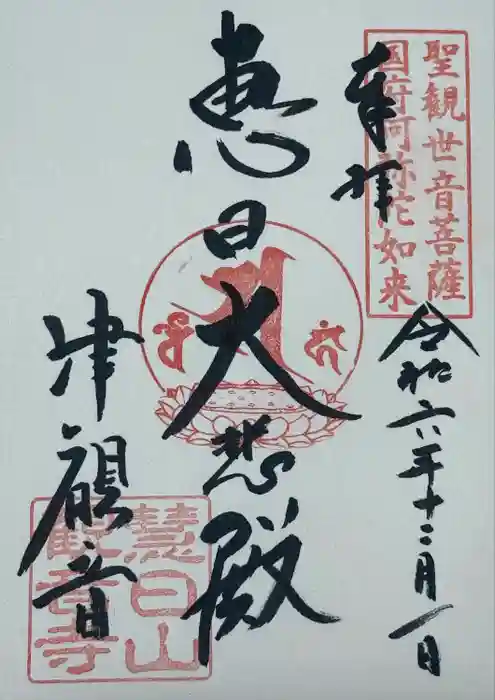 聖観世音菩薩
国府阿弥陀如来
奉拝
令和六年十二月一日
恵日大悲殿
津観音
慧日山
観音寺